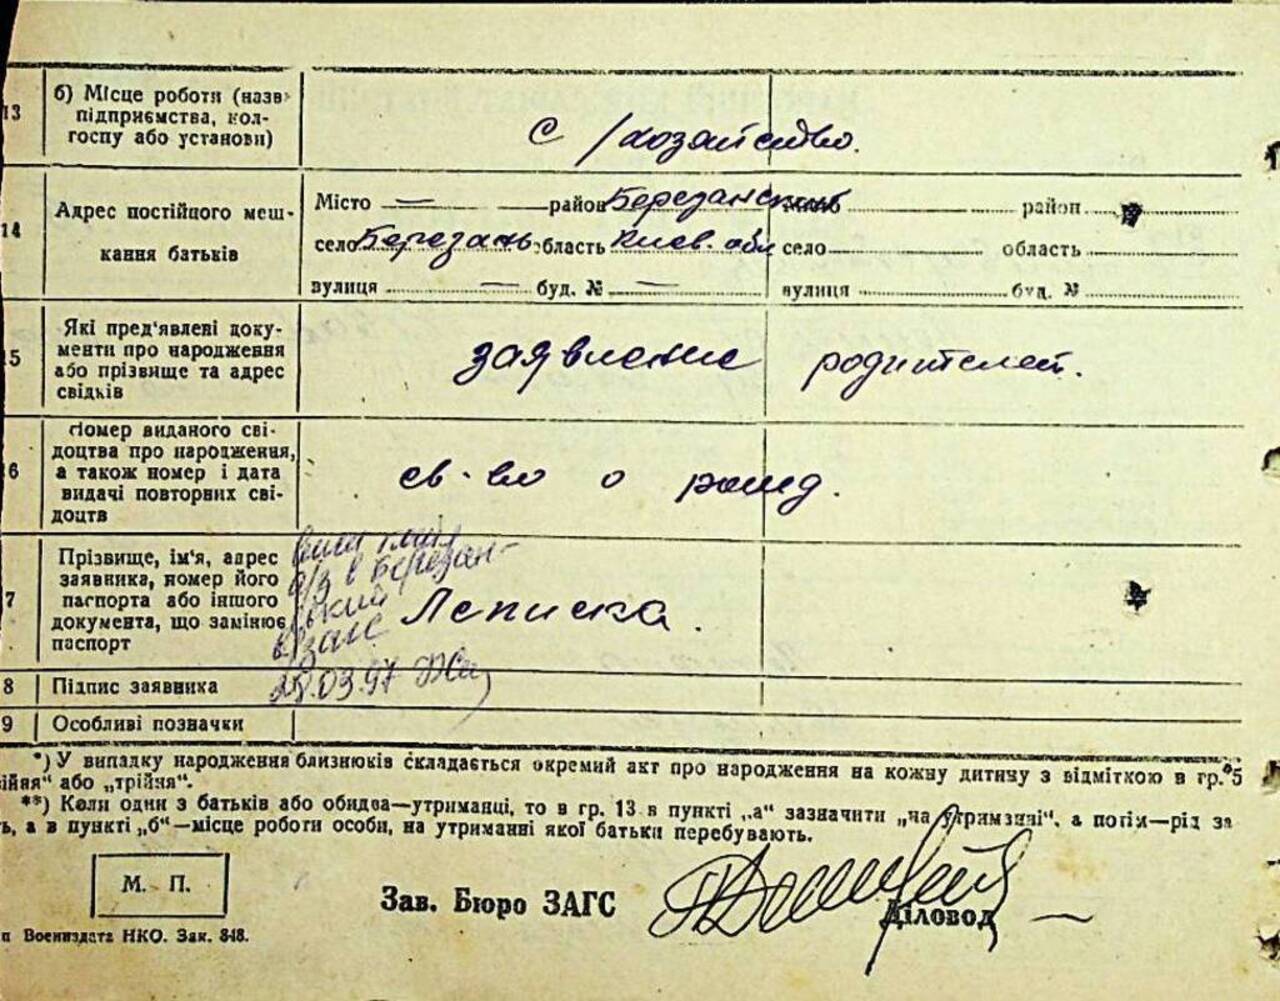 13 б) Місце роботи (назв
підприємства, кол-
госпу або установи)
с/хозайство.
14 Адрес постійного меш-
кання батьків
Місто — район Березанский район
село Березань область Киев. обл село область
вулиця — буд. № — вулиця буд. №
15 Які пред'явлені доку-
менти про народження
або прізвище та адрес
свідків
заявление родителей.
6 Номер виданого сві-
доцтва про народження,
а також номер і дата
видачі повторних сві-
доцтв
св-во о рожд.
7 Прізвище, ім'я, адрес
заявника, номер його
паспорта або іншого
документа, що замінює
паспорт
в Березан-
ський
загс
28.03.97
Леписка.
8 Підпис заявника
9 Особливі позначки
*) У випадку народження близнюків складається окремий акт про народження на кожну дитину з відміткою в гр. 5
ійня" або „трійня".
**) Коли один з батьків або обидва—утриманці, то в гр. 13 в пункті „а" зазначити „на утриманні", а потім—рід за
ь, а в пункті „б"—місце роботи особи, на утриманні якої батьки перебувають.
М. П.
Зав. Бюро ЗАГС
Діловод —
п Воениздата НКО. Зак. 848.